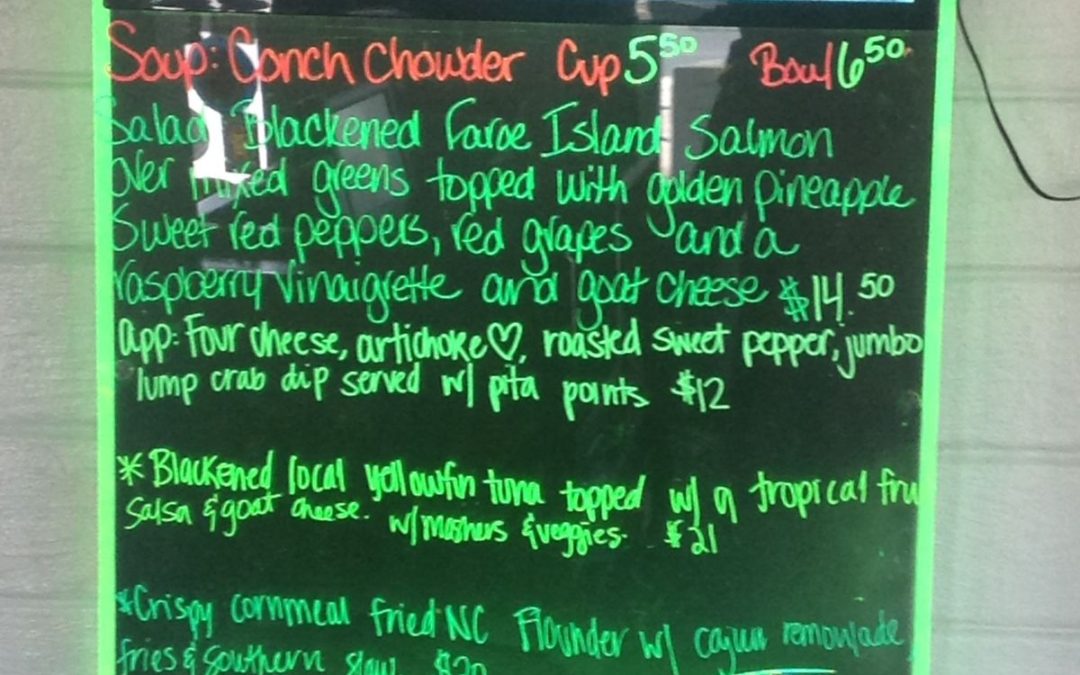 Soup: Conch Chowder Cup 5⁵⁰ Bowl 6⁵⁰
Salad Blackened Faroe Island Salmon
over mixed greens topped with golden pineapple
Sweet red peppers, red grapes and a
raspberry Vinaigrette and goat cheese $14.50
App: Four cheese, artichoke♡, roasted sweet pepper, jumbo
lump crab dip served w/ pita points $12
*Blackened local yellowfin tuna topped w/ a tropical fru
Salsa & goat cheese. w/ mashers & veggies. $21
*Crispy cornmeal fried NC Flounder w/ cajun remoulade
fries & Southern slaw $20